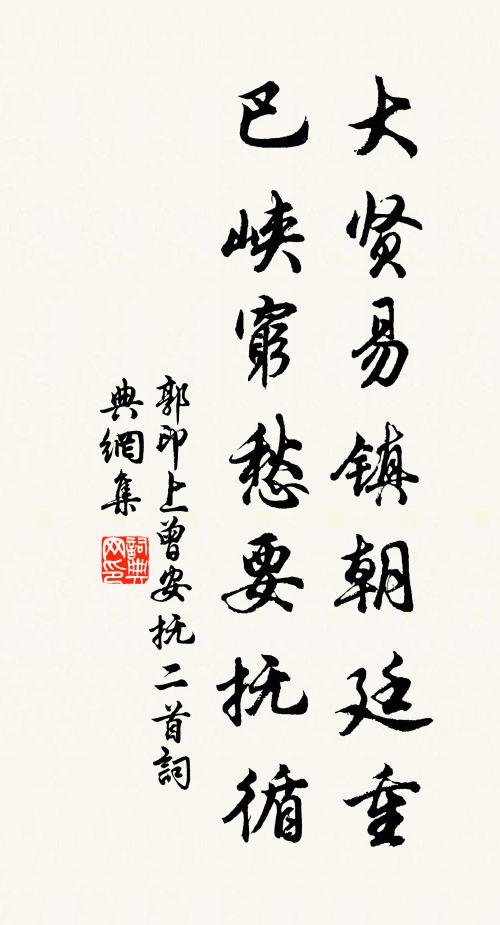 大贤易镇朝廷重
巴峡窮愁要抚循
郭印上曾安抚二首詞
典網集
詞典网印